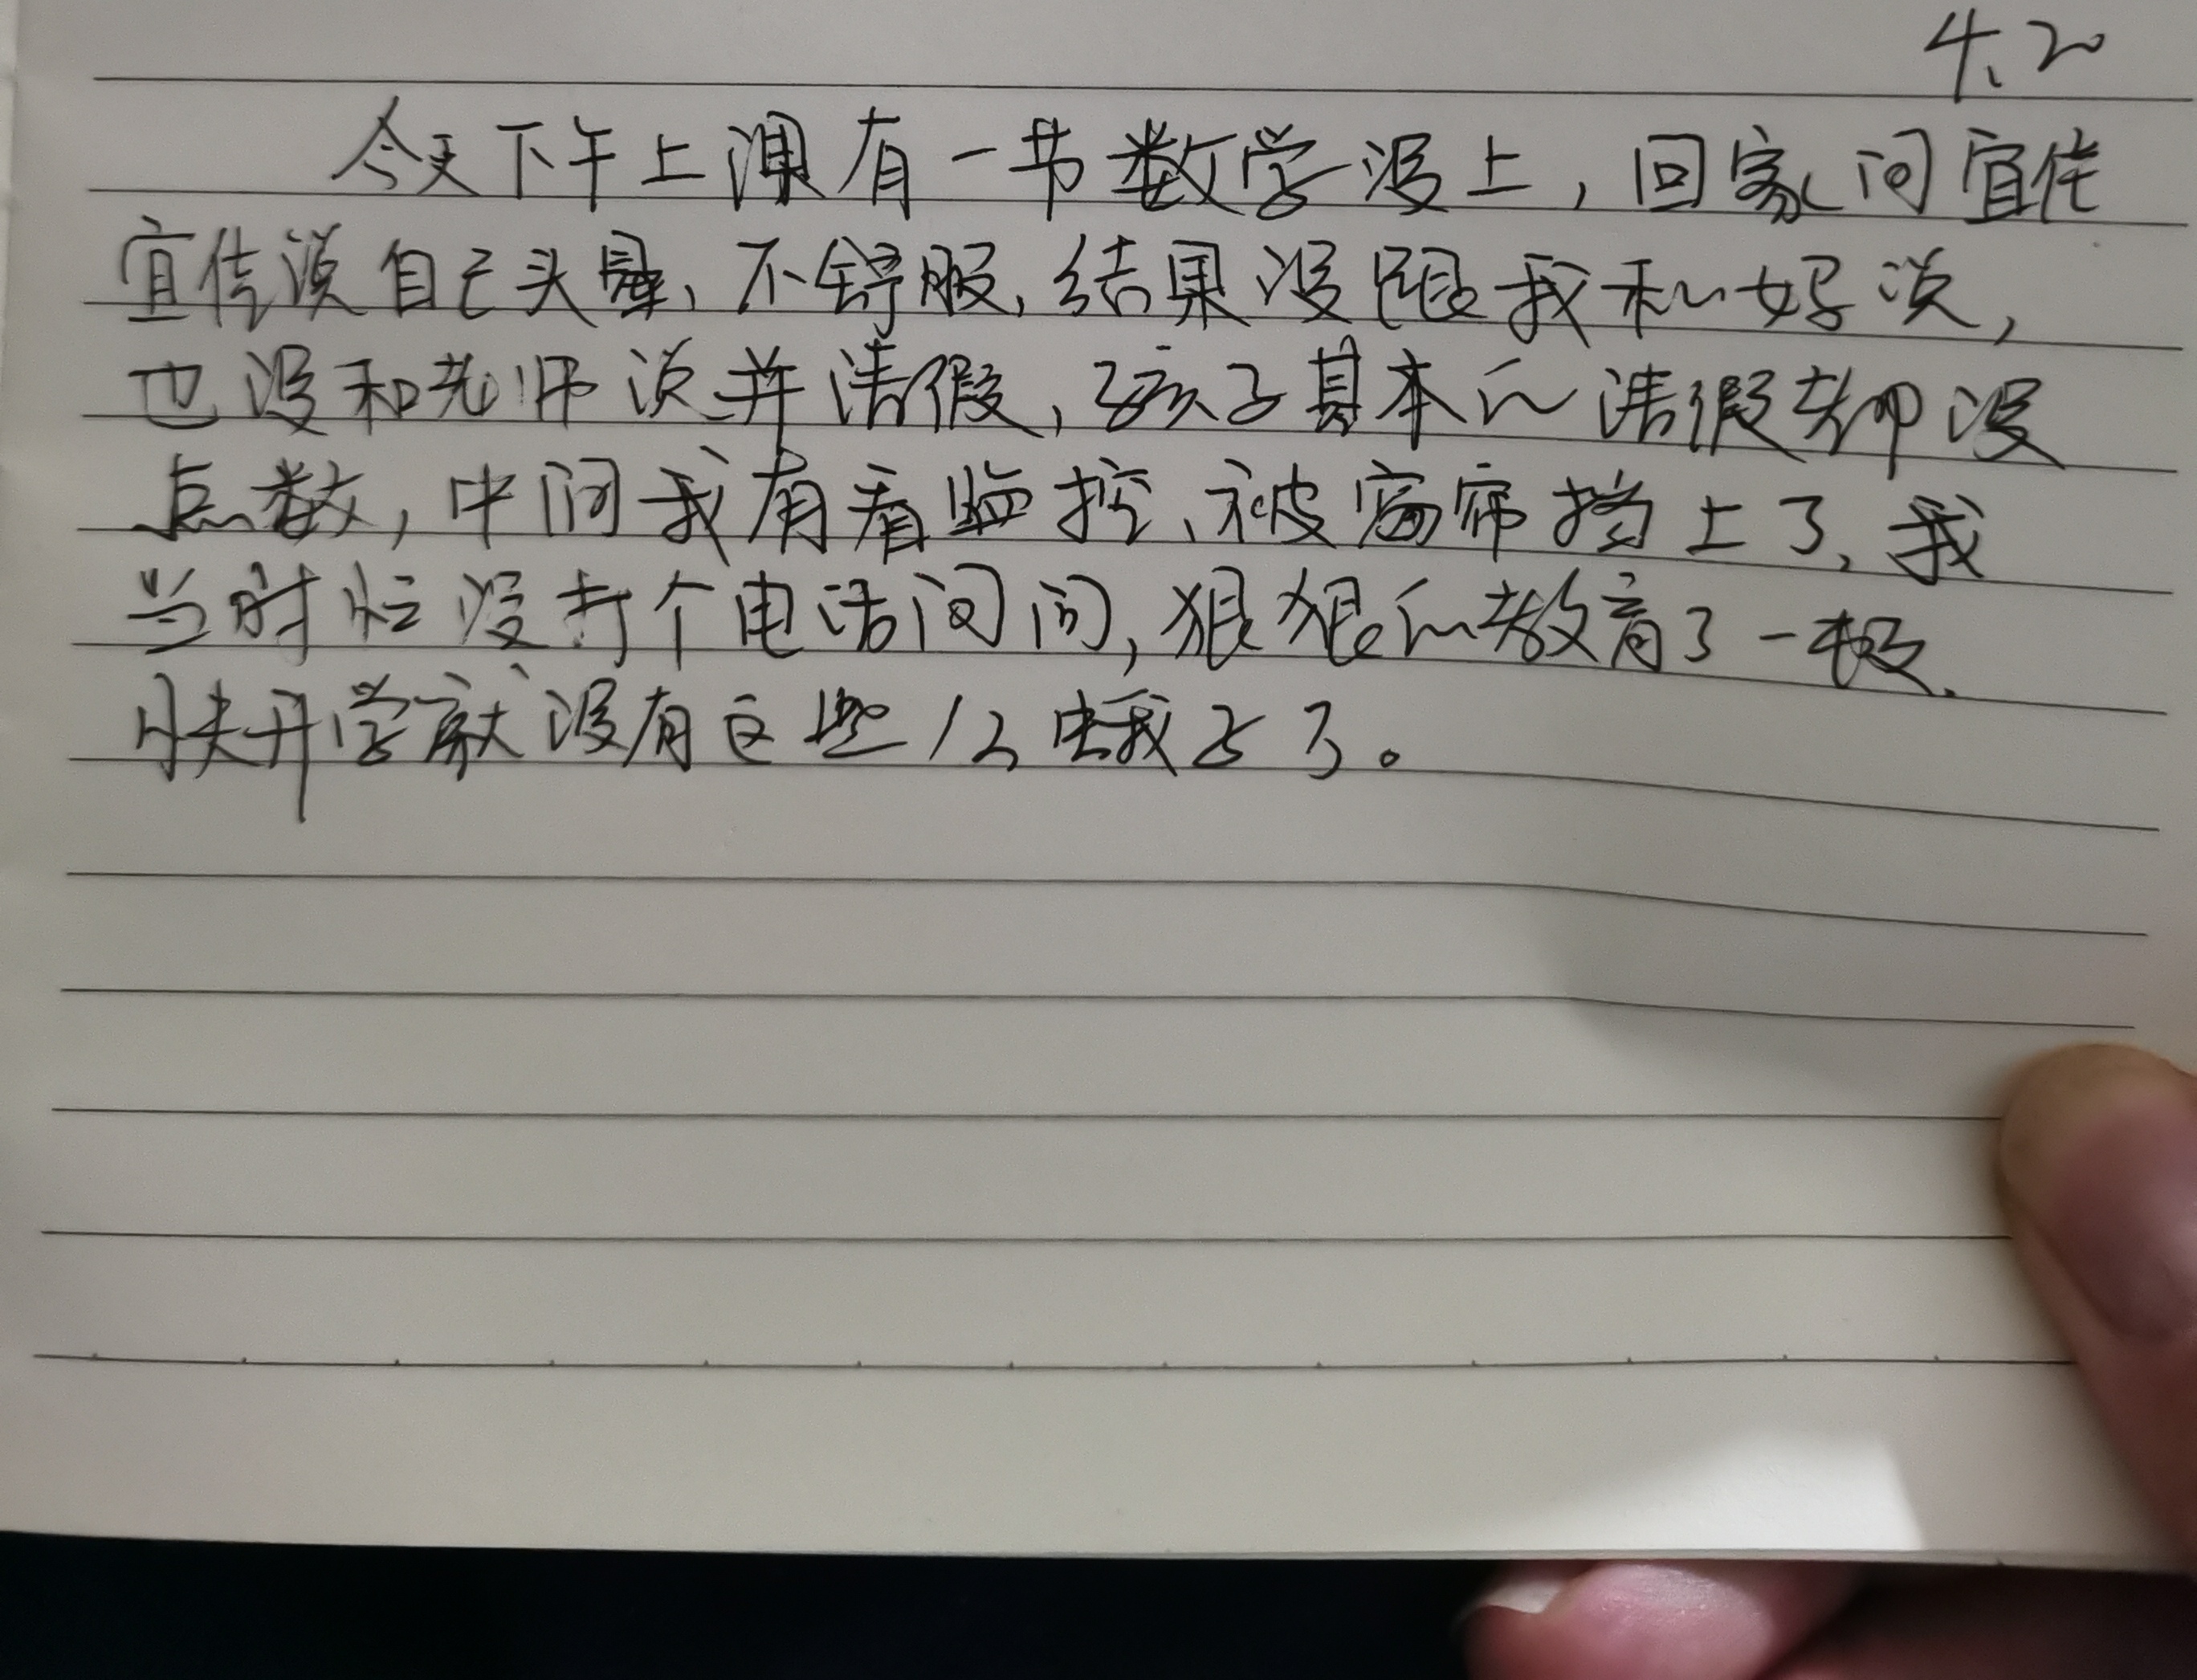 4.20
今天下午上课有一节数学没上，回家问宜佳
宜佳说自己头晕、不舒服，结果没跟我和妈说，
也没和老师说并请假，孩子基本的请假都没
点数，中间我有看监控、被窗帘挡上了，我
当时忙没打个电话问问，狠狠的教育了一顿，
快开学就没有这些幺蛾子了。